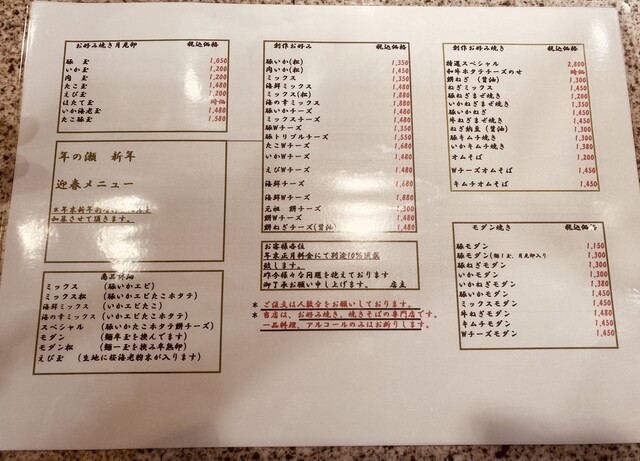 お好み焼き月見卵 税込価格
豚 玉 1,050
いか玉 1,200
肉 玉 1,200
たこ玉 1,480
えび玉 1,200
ほたて玉 時価
いか海老玉 1,480
たこ豚玉 1,580
年の瀬 新年
迎春メニュー
商品詳細
ミックス (豚いかエビ)
ミックス松 (豚いかエビたこホタテ)
海鮮ミックス (いかエビたこ)
海の幸ミックス (いかエビたこホタテ)
スペシャル (豚いかたこホタテ餅チーズ)
モダン (麺半玉を挟んでます)
モダン松 (麺一玉を挟み半熟卵)
えび玉 (生地に桜海老粉末が入ります)
創作お好み 税込価格
豚いか(松) 1,350
肉いか(松) 1,450
ミックス 1,350
海鮮ミックス 1,480
ミックス(松) 1,880
海の幸ミックス 1,880
豚いかチーズ 1,480
ミックスチーズ 1,480
豚Wチーズ 1,350
豚トリプルチーズ 1,550
たこWチーズ 1,680
いかWチーズ 1,480
えびWチーズ 1,480
海鮮チーズ 1,680
海鮮Wチーズ 1,880
元祖 餅チーズ 1,300
餅Wチーズ 1,480
餅ねぎチーズ(醤油) 1,480
お客様各位
年末正月料金にて別途10%頂戴
致します。
昨今様々な問題を抱えております
御了承お願い申し上げます。 店主
* ご注文は人数分をお願いしております。
* 当店は、お好み焼き、焼きそばの専門店です。
一品料理、アルコールのみはお断りします。
創作お好み焼き 税込価格
特選スペシャル 2,800
和牛ホタテチーズのせ 時価
餅ねぎ (醤油) 1,300
ねぎミックス 1,450
豚ねぎまぜ焼き 1,200
いかねぎまぜ焼き 1,350
豚いかねぎ 1,450
牛ねぎまぜ焼き 1,450
ねぎ納豆 (醤油) 1,300
豚キムチ焼き 1,300
いかキムチ焼き 1,380
オムそば 1,200
Wチーズオムそば 1,450
キムチオムそば 1,450
モダン焼き 税込価格
豚モダン 1,150
豚モダン(麺1玉、月見卵入り 1,300
豚ねぎモダン 1,300
いかモダン 1,300
いかねぎモダン 1,380
豚いかモダン 1,450
ミックスモダン 1,450
牛ねぎモダン 1,480
キムチモダン 1,450
Wチーズモダン 1,450